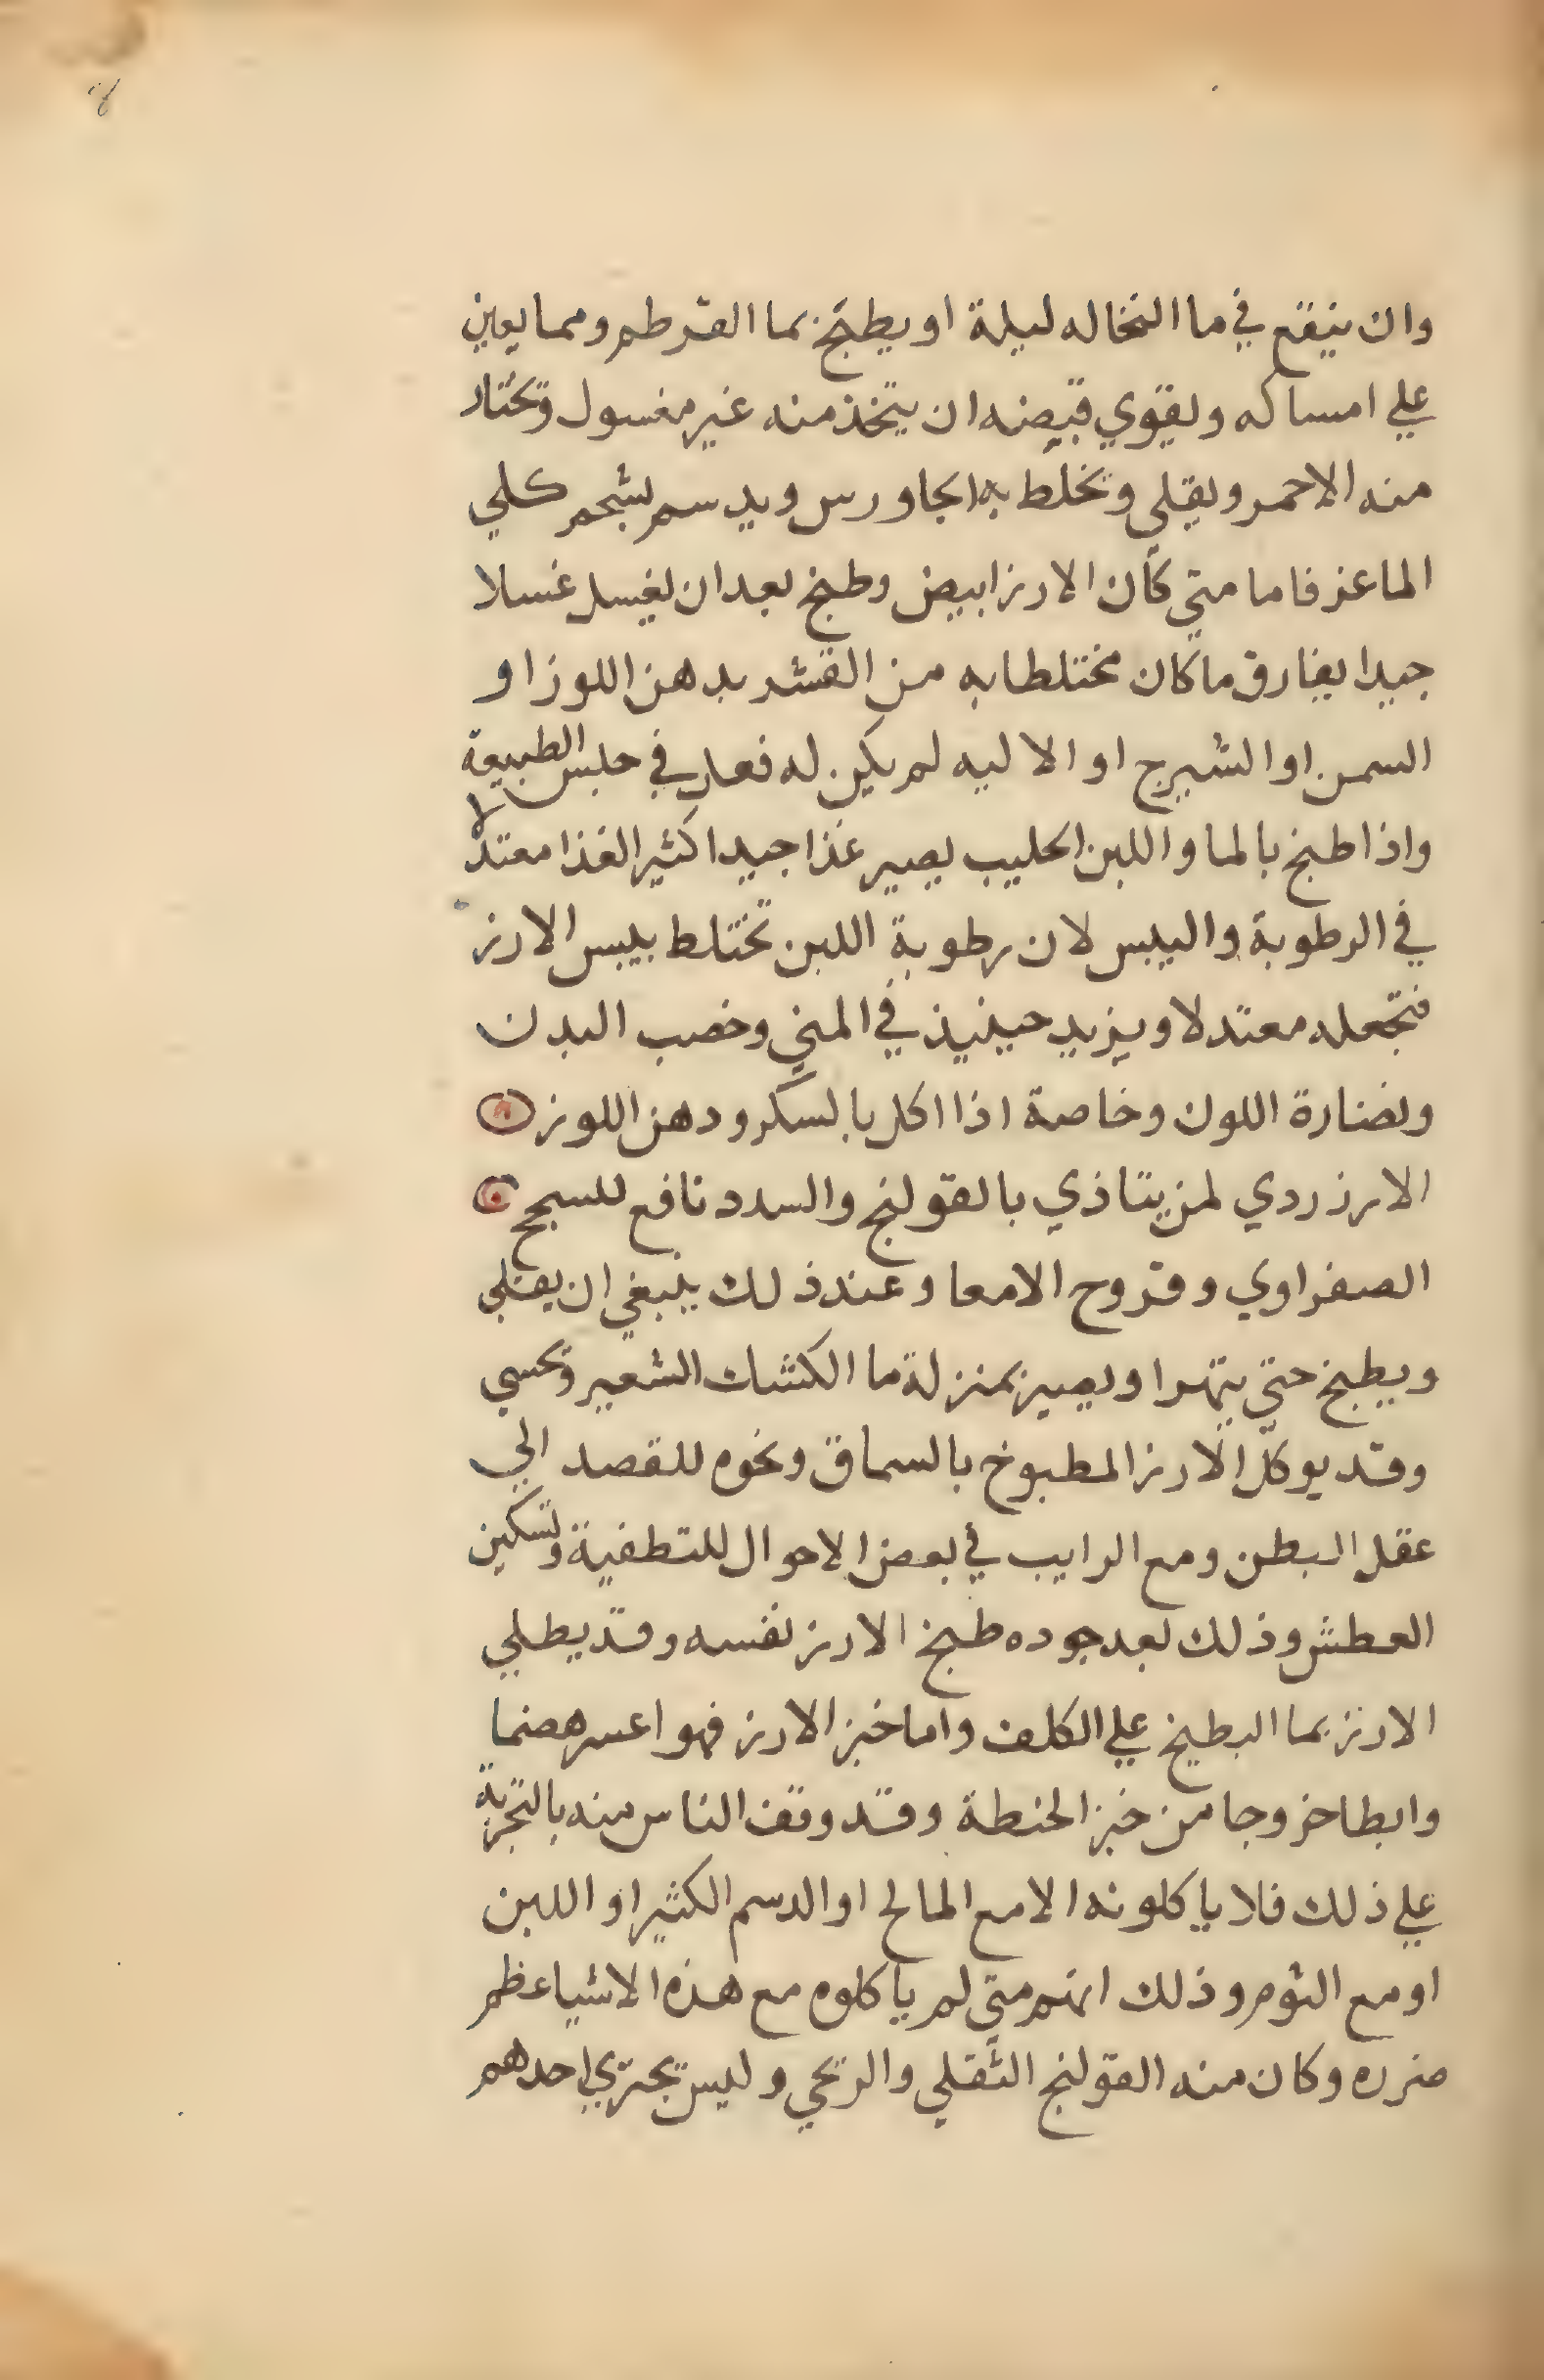 وان ينقع في ما النخاله ليلة او يطبخ بما القرطم ومما يعين
علي امساكه ويقوي قبضه ان يتخذ منه غير مغسول وتختار
منه الاحمر ويقلي وتخلط به الجاورس ويدسم بشحم كلي
الماعز فاما متي كان الارز ابيض وطبخ بعد ان يغسل غسلا
جيدا يفارق ما كان مختلطا به من القشر بدهن اللوز او
السمن او الشيرج او الاليه لم يكن له فعل في حبس الطبيعة
واذا طبخ بالما واللبن الحليب يصير غذا جيدا كثير الغذا معتدلا
في الرطوبة واليبس لان رطوبة اللبن تختلط بيبس الارز
فتجعله معتدلا ويزيد حينيذ في المني وخصب البدن
ونضارة اللون وخاصة اذا اكل بالسكر ودهن اللوز
الارز ردي لمن يتاذي بالقولنج والسدد نافع للسحج
الصفراوي وقروح الامعا وعند ذلك ينبغي ان يقلي
ويطبخ حتي يتهرا ويصير بمنزلة ما الكشك الشعير وتحسي
وقد يوكل الارز المطبوخ بالسماق ونحوه للقصد الي
عقل البطن ومع الرايب في بعض الاحوال للتطفية وتسكين
العطش وذلك بعد جوده طبخ الارز نفسه وقد يطلي
الارز بما البطيخ علي الكلف واما خبز الارز فهو اعسر هضما
وابطا خروجا من خبز الحنطة وقد وقف الناس منه بالتجربة
علي ذلك فلا ياكلونه الا مع المالح او الدسم الكثير او اللبن
او مع الثوم وذلك انهم متي لم ياكلوه مع هذه الاشيا عظم
ضرره وكان منه القولنج الثقلي والريحي وليس تجتري احدهم